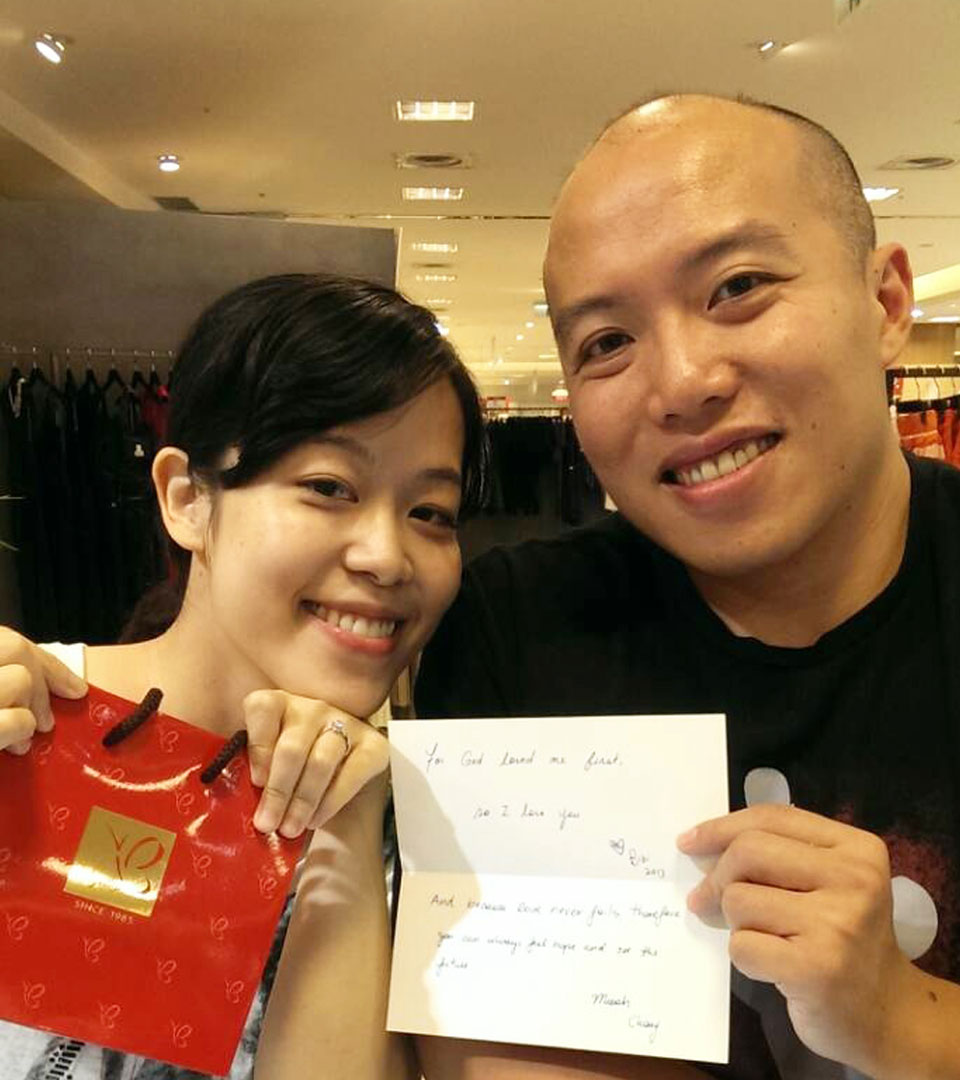 SINCE 1985
For God loved me first,
so I love you
2013
And because love never fails, therefore
you can always feel hope and see the
future